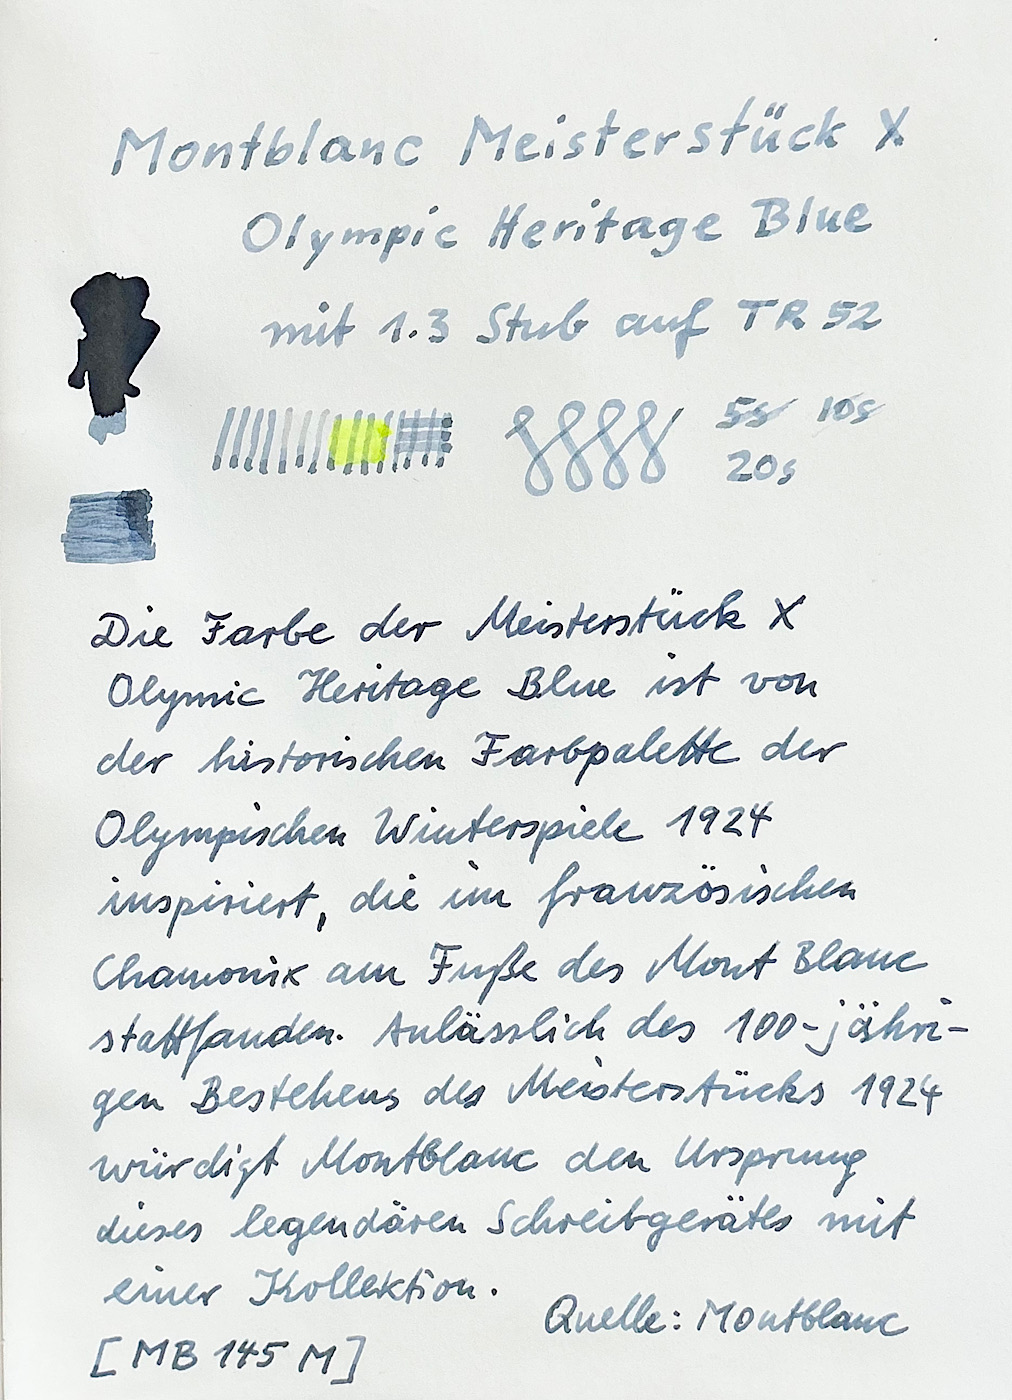 Montblanc Meisterstück X
Olympic Heritage Blue
mit 1.3 Stub auf TR 52
5s 10s
20s
Die Farbe der Meisterstück X
Olymic Heritage Blue ist von
der historischen Farbpalette der
Olympischen Winterspiele 1924
inspiriert, die im französischen
Chamonix am Fuße des Mont Blanc
stattfanden. Anlässlich des 100-jähri-
gen Bestehens des Meisterstücks 1924
würdigt Montblanc den Ursprung
dieses legendären Schreibgerätes mit
einer Kollektion.
Quelle: Montblanc
[MB 145 M]